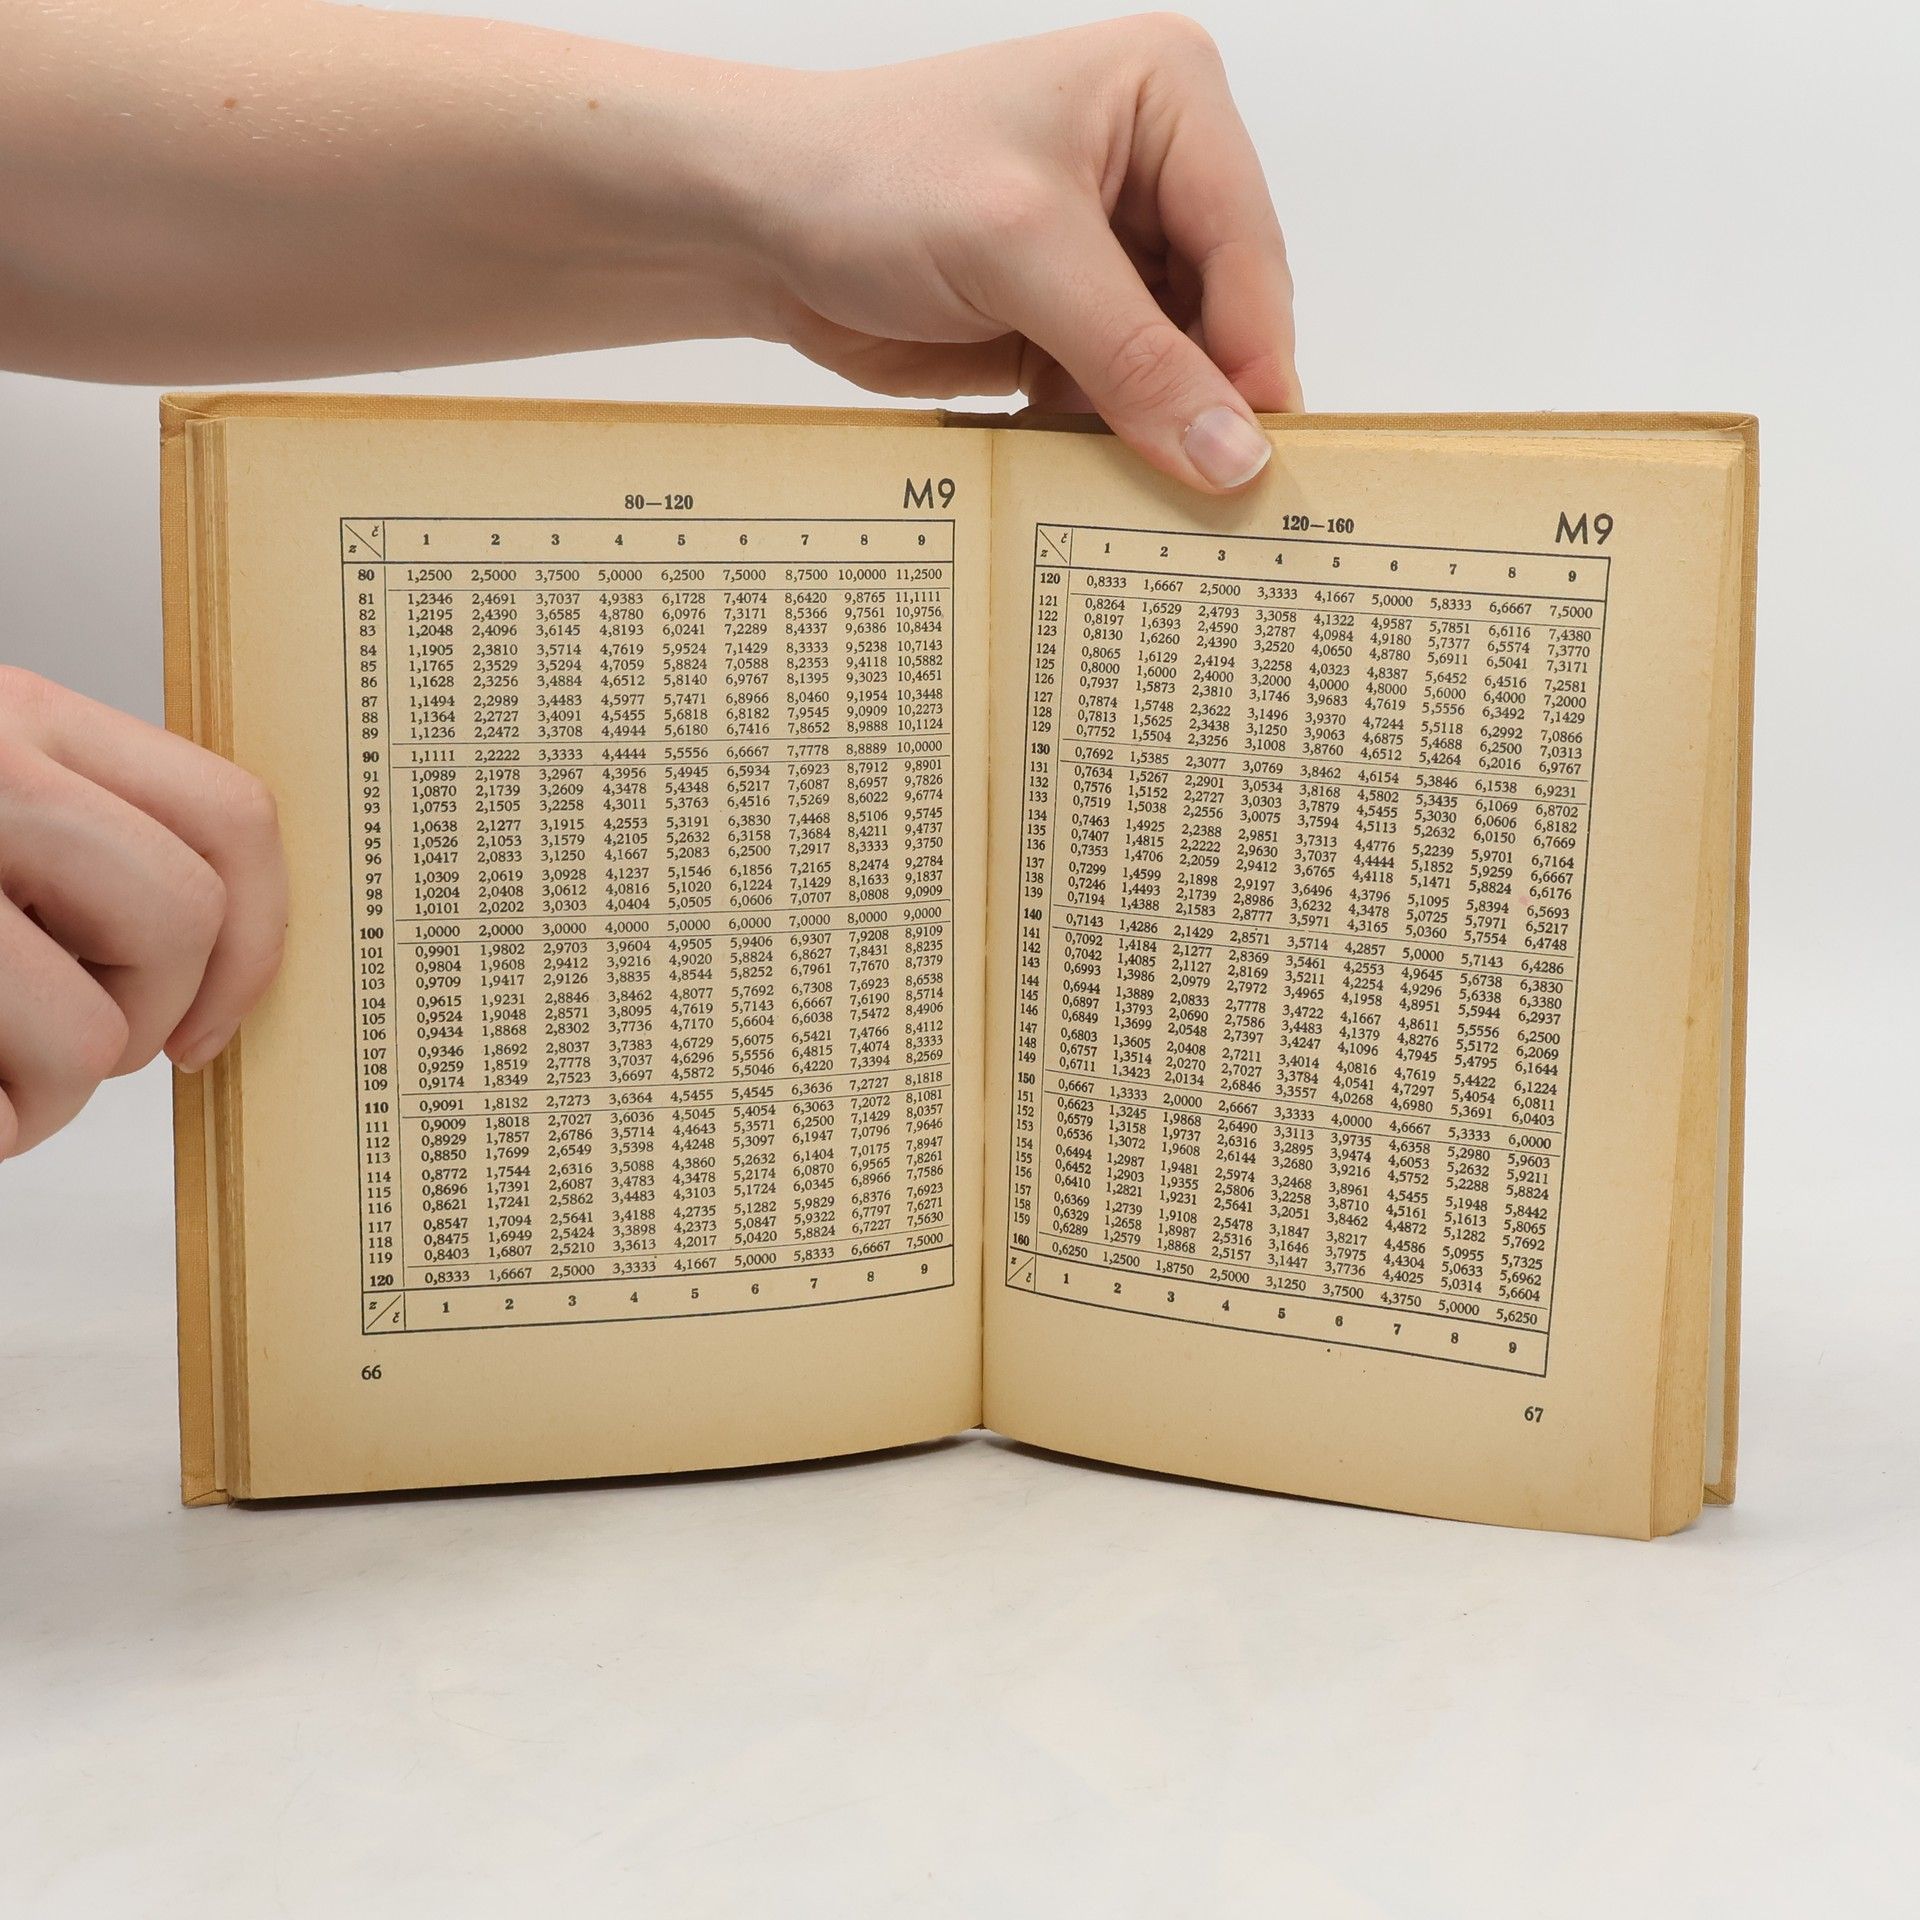 80—120 M9
z č 1 2 3 4 5 6 7 8 9
80 1,2500 2,5000 3,7500 5,0000 6,2500 7,5000 8,7500 10,0000 11,2500
81 1,2346 2,4691 3,7037 4,9383 6,1728 7,4074 8,6420 9,8765 11,1111
82 1,2195 2,4390 3,6585 4,8780 6,0976 7,3171 8,5366 9,7561 10,9756
83 1,2048 2,4096 3,6145 4,8193 6,0241 7,2289 8,4337 9,6386 10,8434
84 1,1905 2,3810 3,5714 4,7619 5,9524 7,1429 8,3333 9,5238 10,7143
85 1,1765 2,3529 3,5294 4,7059 5,8824 7,0588 8,2353 9,4118 10,5882
86 1,1628 2,3256 3,4884 4,6512 5,8140 6,9767 8,1395 9,3023 10,4651
87 1,1494 2,2989 3,4483 4,5977 5,7471 6,8966 8,0460 9,1954 10,3448
88 1,1364 2,2727 3,4091 4,5455 5,6818 6,8182 7,9545 9,0909 10,2273
89 1,1236 2,2472 3,3708 4,4944 5,6180 6,7416 7,8652 8,9888 10,1124
90 1,1111 2,2222 3,3333 4,4444 5,5556 6,6667 7,7778 8,8889 10,0000
91 1,0989 2,1978 3,2967 4,3956 5,4945 6,5934 7,6923 8,7912 9,8901
92 1,0870 2,1739 3,2609 4,3478 5,4348 6,5217 7,6087 8,6957 9,7826
93 1,0753 2,1505 3,2258 4,3011 5,3763 6,4516 7,5269 8,6022 9,6774
94 1,0638 2,1277 3,1915 4,2553 5,3191 6,3830 7,4468 8,5106 9,5745
95 1,0526 2,1053 3,1579 4,2105 5,2632 6,3158 7,3684 8,4211 9,4737
96 1,0417 2,0833 3,1250 4,1667 5,2083 6,2500 7,2917 8,3333 9,3750
97 1,0309 2,0619 3,0928 4,1237 5,1546 6,1856 7,2165 8,2474 9,2784
98 1,0204 2,0408 3,0612 4,0816 5,1020 6,1224 7,1429 8,1633 9,1837
99 1,0101 2,0202 3,0303 4,0404 5,0505 6,0606 7,0707 8,0808 9,0909
100 1,0000 2,0000 3,0000 4,0000 5,0000 6,0000 7,0000 8,0000 9,0000
101 0,9901 1,9802 2,9703 3,9604 4,9505 5,9406 6,9307 7,9208 8,9109
102 0,9804 1,9608 2,9412 3,9216 4,9020 5,8824 6,8627 7,8431 8,8235
103 0,9709 1,9417 2,9126 3,8835 4,8544 5,8252 6,7961 7,7670 8,7379
104 0,9615 1,9231 2,8846 3,8462 4,8077 5,7692 6,7308 7,6923 8,6538
105 0,9524 1,9048 2,8571 3,8095 4,7619 5,7143 6,6667 7,6190 8,5714
106 0,9434 1,8868 2,8302 3,7736 4,7170 5,6604 6,6038 7,5472 8,4906
107 0,9346 1,8692 2,8037 3,7383 4,6729 5,6075 6,5421 7,4766 8,4112
108 0,9259 1,8519 2,7778 3,7037 4,6296 5,5556 6,4815 7,4074 8,3333
109 0,9174 1,8349 2,7523 3,6697 4,5872 5,5046 6,4220 7,3394 8,2569
110 0,9091 1,8182 2,7273 3,6364 4,5455 5,4545 6,3636 7,2727 8,1818
111 0,9009 1,8018 2,7027 3,6036 4,5045 5,4054 6,3063 7,2072 8,1081
112 0,8929 1,7857 2,6786 3,5714 4,4643 5,3571 6,2500 7,1429 8,0357
113 0,8850 1,7699 2,6549 3,5398 4,4248 5,3097 6,1947 7,0796 7,9646
114 0,8772 1,7544 2,6316 3,5088 4,3860 5,2632 6,1404 7,0175 7,8947
115 0,8696 1,7391 2,6087 3,4783 4,3478 5,2174 6,0870 6,9565 7,8261
116 0,8621 1,7241 2,5862 3,4483 4,3103 5,1724 6,0345 6,8966 7,7586
117 0,8547 1,7094 2,5641 3,4188 4,2735 5,1282 5,9829 6,8376 7,6923
118 0,8475 1,6949 2,5424 3,3898 4,2373 5,0847 5,9322 6,7797 7,6271
119 0,8403 1,6807 2,5210 3,3613 4,2017 5,0420 5,8824 6,7227 7,5630
120 0,8333 1,6667 2,5000 3,3333 4,1667 5,0000 5,8333 6,6667 7,5000
z č 1 2 3 4 5 6 7 8 9
66
120—160 M9
z č 1 2 3 4 5 6 7 8 9
120 0,8333 1,6667 2,5000 3,3333 4,1667 5,0000 5,8333 6,6667 7,5000
121 0,8264 1,6529 2,4793 3,3058 4,1322 4,9587 5,7851 6,6116 7,4380
122 0,8197 1,6393 2,4590 3,2787 4,0984 4,9180 5,7377 6,5574 7,3770
123 0,8130 1,6260 2,4390 3,2520 4,0650 4,8780 5,6911 6,5041 7,3171
124 0,8065 1,6129 2,4194 3,2258 4,0323 4,8387 5,6452 6,4516 7,2581
125 0,8000 1,6000 2,4000 3,2000 4,0000 4,8000 5,6000 6,4000 7,2000
126 0,7937 1,5873 2,3810 3,1746 3,9683 4,7619 5,5556 6,3492 7,1429
127 0,7874 1,5748 2,3622 3,1496 3,9370 4,7244 5,5118 6,2992 7,0866
128 0,7813 1,5625 2,3438 3,1250 3,9063 4,6875 5,4688 6,2500 7,0313
129 0,7752 1,5504 2,3256 3,1008 3,8760 4,6512 5,4264 6,2016 6,9767
130 0,7692 1,5385 2,3077 3,0769 3,8462 4,6154 5,3846 6,1538 6,9231
131 0,7634 1,5267 2,2901 3,0534 3,8168 4,5802 5,3435 6,1069 6,8702
132 0,7576 1,5152 2,2727 3,0303 3,7879 4,5455 5,3030 6,0606 6,8182
133 0,7519 1,5038 2,2556 3,0075 3,7594 4,5113 5,2632 6,0150 6,7669
134 0,7463 1,4925 2,2388 2,9851 3,7313 4,4776 5,2239 5,9701 6,7164
135 0,7407 1,4815 2,2222 2,9630 3,7037 4,4444 5,1852 5,9259 6,6667
136 0,7353 1,4706 2,2059 2,9412 3,6765 4,4118 5,1471 5,8824 6,6176
137 0,7299 1,4599 2,1898 2,9197 3,6496 4,3796 5,1095 5,8394 6,5693
138 0,7246 1,4493 2,1739 2,8986 3,6232 4,3478 5,0725 5,7971 6,5217
139 0,7194 1,4388 2,1583 2,8777 3,5971 4,3165 5,0360 5,7554 6,4748
140 0,7143 1,4286 2,1429 2,8571 3,5714 4,2857 5,0000 5,7143 6,4286
141 0,7092 1,4184 2,1277 2,8369 3,5461 4,2553 4,9645 5,6738 6,3830
142 0,7042 1,4085 2,1127 2,8169 3,5211 4,2254 4,9296 5,6338 6,3380
143 0,6993 1,3986 2,0979 2,7972 3,4965 4,1958 4,8951 5,5944 6,2937
144 0,6944 1,3889 2,0833 2,7778 3,4722 4,1667 4,8611 5,5556 6,2500
145 0,6897 1,3793 2,0690 2,7586 3,4483 4,1379 4,8276 5,5172 6,2069
146 0,6849 1,3699 2,0548 2,7397 3,4247 4,1096 4,7945 5,4795 6,1644
147 0,6803 1,3605 2,0408 2,7211 3,4014 4,0816 4,7619 5,4422 6,1224
148 0,6757 1,3514 2,0270 2,7027 3,3784 4,0541 4,7297 5,4054 6,0811
149 0,6711 1,3423 2,0134 2,6846 3,3557 4,0268 4,6980 5,3691 6,0403
150 0,6667 1,3333 2,0000 2,6667 3,3333 4,0000 4,6667 5,3333 6,0000
151 0,6623 1,3245 1,9868 2,6490 3,3113 3,9735 4,6358 5,2980 5,9603
152 0,6579 1,3158 1,9737 2,6316 3,2895 3,9474 4,6053 5,2632 5,9211
153 0,6536 1,3072 1,9608 2,6144 3,2680 3,9216 4,5752 5,2288 5,8824
154 0,6494 1,2987 1,9481 2,5974 3,2468 3,8961 4,5455 5,1948 5,8442
155 0,6452 1,2903 1,9355 2,5806 3,2258 3,8710 4,5161 5,1613 5,8065
156 0,6410 1,2821 1,9231 2,5641 3,2051 3,8462 4,4872 5,1282 5,7692
157 0,6369 1,2739 1,9108 2,5478 3,1847 3,8217 4,4586 5,0955 5,7325
158 0,6329 1,2658 1,8987 2,5316 3,1646 3,7975 4,4304 5,0633 5,6962
159 0,6289 1,2579 1,8868 2,5157 3,1447 3,7736 4,4025 5,0314 5,6604
160 0,6250 1,2500 1,8750 2,5000 3,1250 3,7500 4,3750 5,0000 5,6250
z č 1 2 3 4 5 6 7 8 9
67